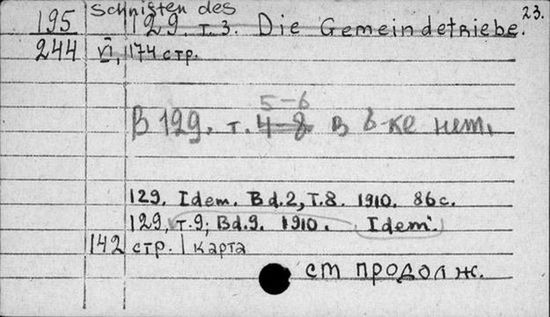 23.
Schriften des
195 129. т.3. Die Gemeindetriebe.
244 VI, 174 стр.
5-6
В 129. т. 4-8 в б-ке нет.
129. Idem. Bd.2, T.8. 1910. 86 с.
129, т.9; Bd.9. 1910. Idem.
142 стр. 1 карта
см продолж.